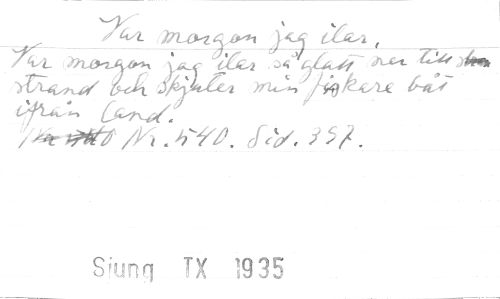 Var morgon jag ilar,
Var morgon jag ilar så glatt ner till
strand och skjuter min fiskare båt
ifrån land.
Nr. 540. Sid. 397.
Sjung TX 1935